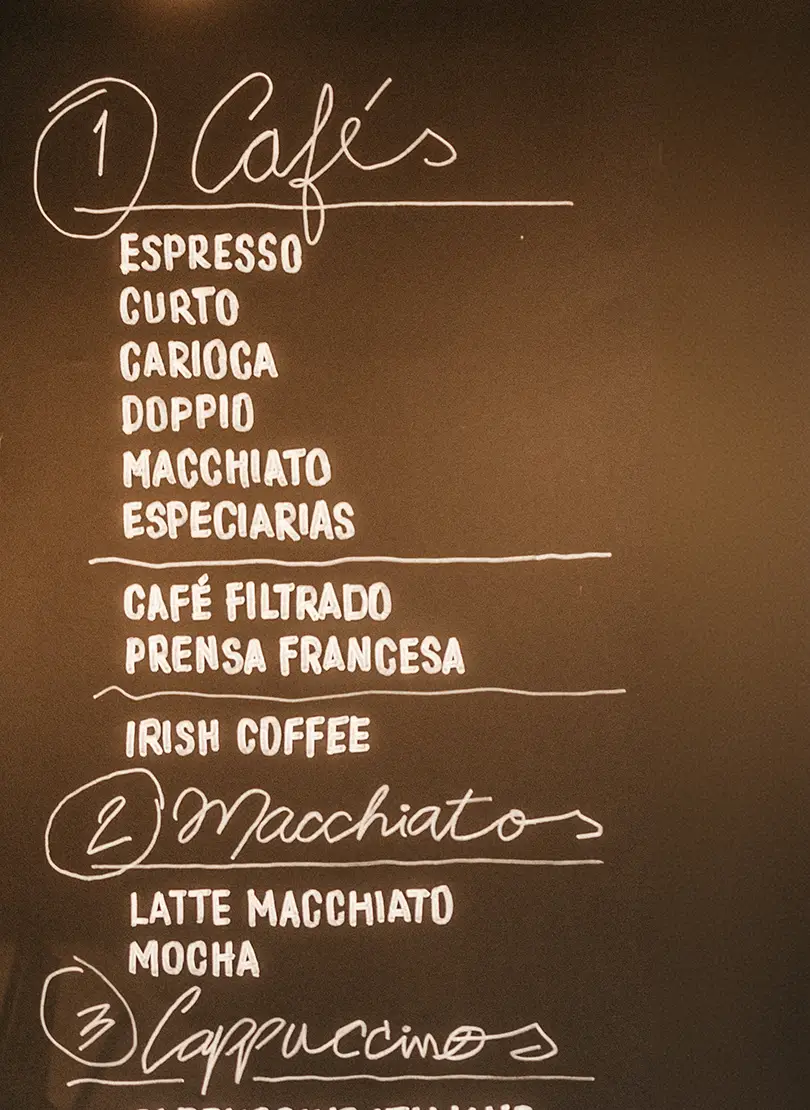 1 Cafés
ESPRESSO
CURTO
CARIOCA
DOPPIO
MACCHIATO
ESPECIARIAS
CAFÉ FILTRADO
PRENSA FRANCESA
IRISH COFFEE
2 Macchiatos
LATTE MACCHIATO
MOCHA
3 Cappuccinos